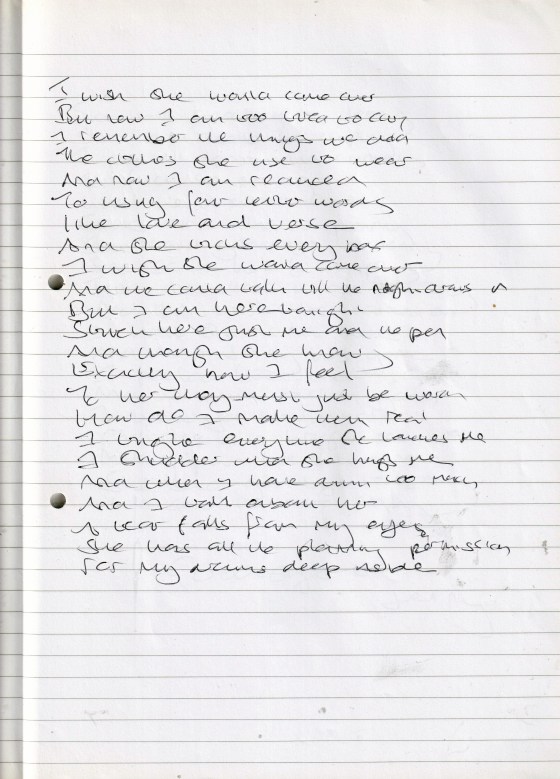 I wish she would come over
But now I am too tired to cry
I remember the things we did
The clothes she use to wear
And now I am reduced
To using four letter words
Like love and verse
And she ticks every box
I wish she would come over
And we could talk till the night draws in
But I am here tonight
Stuck here just me and the pen
And though she knows
Exactly how I feel
To her they must just be words
How do I make them real
I tingle everytime she touches me
I shudder when she hugs me
And when I have drunk too much
And I talk about her
A tear falls from my eyes
She has all the planning permission
For my dreams deep inside